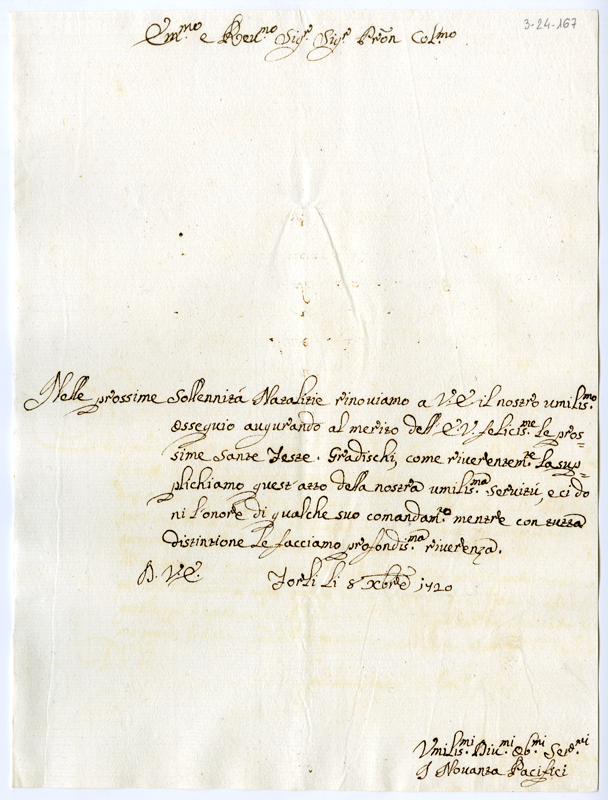 3-24-167
Em.mo e Reu.mo Sig.r Sig.r Pr̃on Col.mo
Nelle prossime Sollennitá Natalitie rinoviamo a V.E. il nostro umilis.mo
osseguio augurando al merito dell'E.V. felicis.me le pros=
sime Sante Feste. Gradischi, come riverentem.te la sup=
plichiamo quest'atto della nostra umilis.ma Servitú, e ci do
ni l'onore di qualche suo comandam.to mentre con tutta
distintione le facciamo profondis.ma riverenza.
D. V.E. Forli li 8 Xbre 1720
Vmilis.mi Diu.mi Ob.mi Ser.ri
I Novanta Pacifici